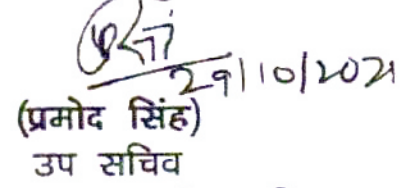 29/10/2021
(प्रमोद सिंह)
उप सचिव